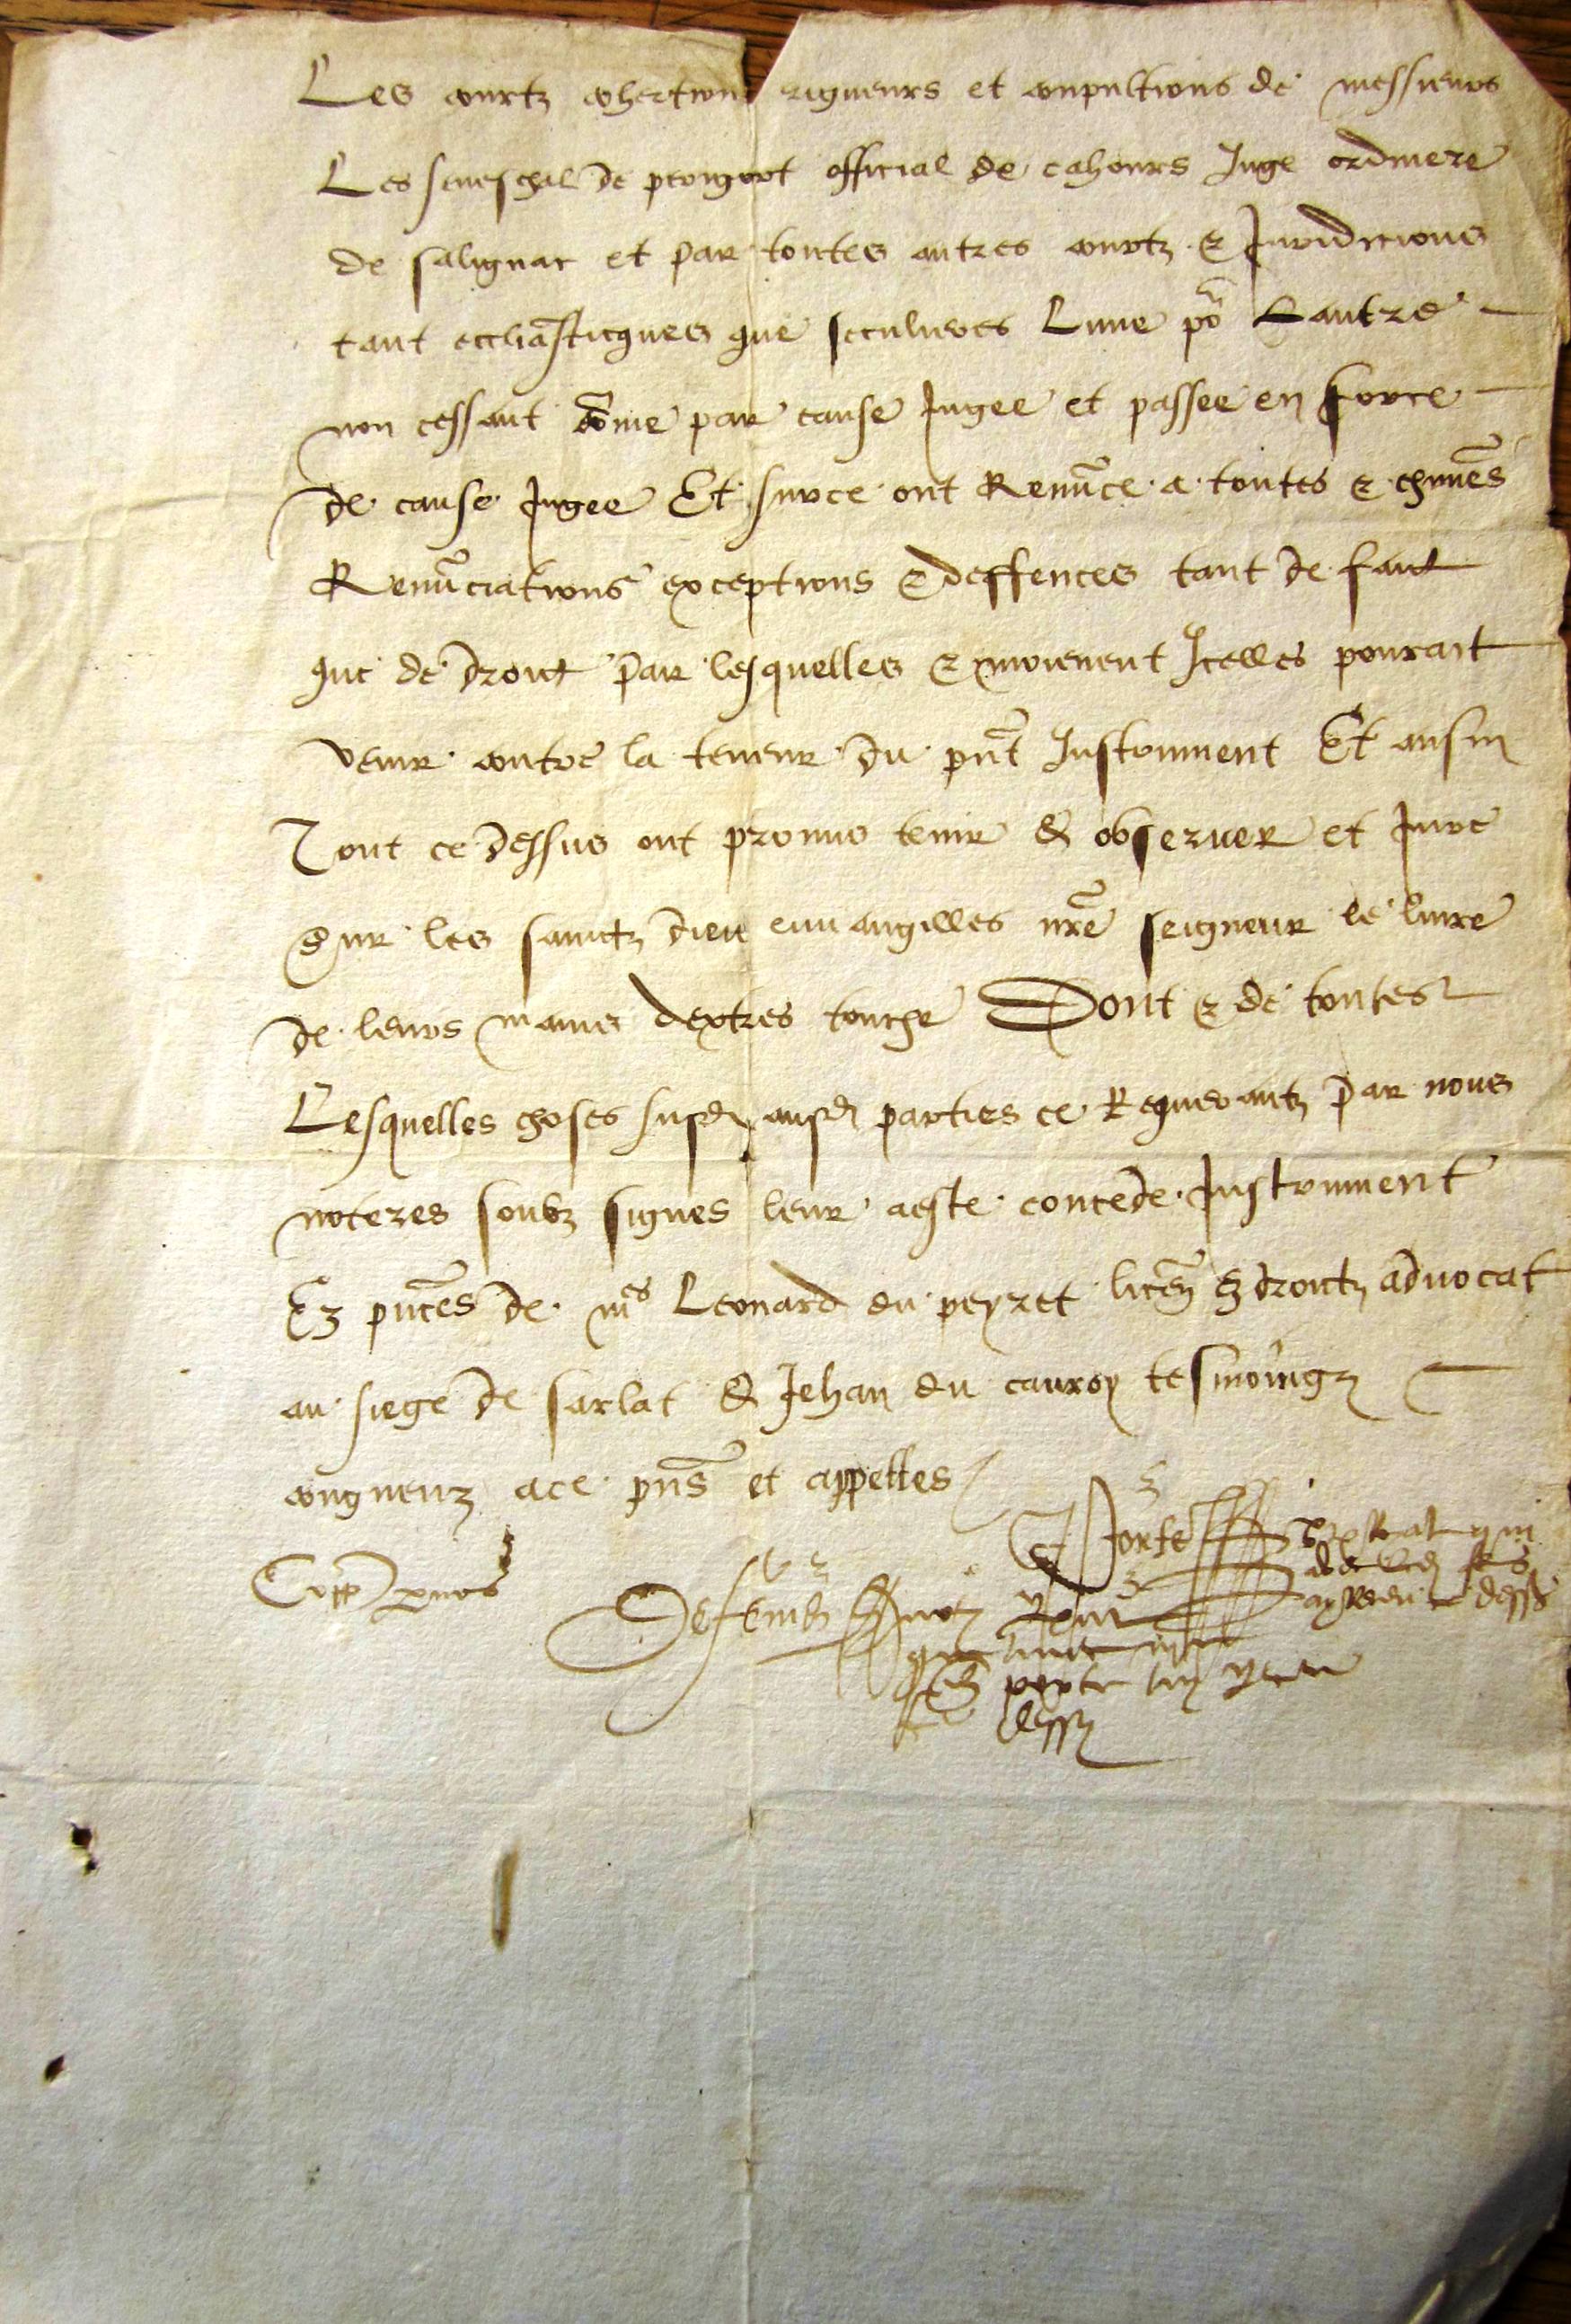 Les courtz cohertions rigueurs et conpultions de messieurs
Les seneschal de perigort official de cahours Juge ordinere
de salignac et par toutes autres courtz & Juridicions
tant eccliasticques que seculieres Lune por Lautre
non cessant come par cause Jugee et passee en force
de cause Jugee Et surce ont Renunce a toutes & chunes
Renunciations exceptions & deffences tant de faict
que de droict par lesquelles & moienent Icelles pourait
venir contre la teneur du pnt Instrument Et ansin
Tout ce dessus ont promis tenir & observer et Jure
sur les sainctz dieu euvangilles nre seigneur le livre
de leurs mains dextres touche Dont & de toutes
Lesquelles choses susd ausd parties ce Requerantz par nous
noteres soubz signes leur a este concede Instrument
Ez pnces de mes Leonard du peyret licen ez droictz advocat
au siege de sarlat & Jehan du cauroy tesmoingz
congneuz a ce pns et appelles